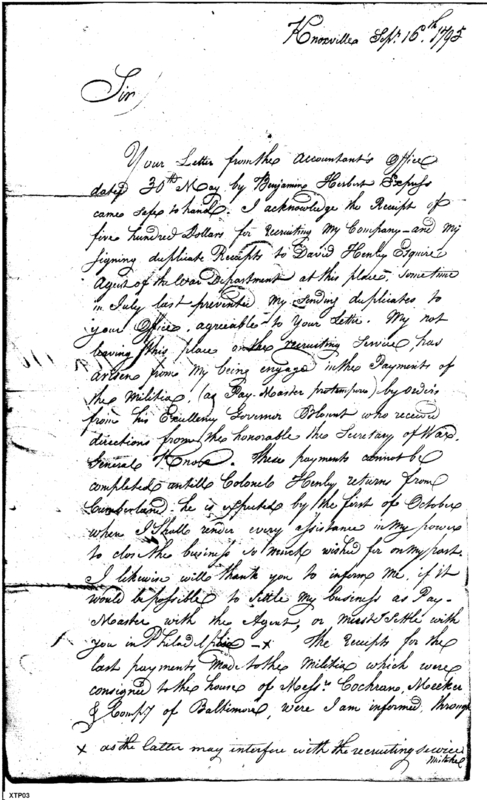 Knoxville Sept. 16.th 1795
Sir
Your Letter from the Accountant's Office
dated 30th May by Benjamin Herbert Express
came safe to hand. I acknowledge the Receipt of
five hundred Dollars for recruiting My Company - and my
signing duplicate Receipts to David Henley Esquire
Agent of the War Department at this place, Sometime
in July last prevented My Sending duplicates to
your Office, agreeable to Your Letter. My not
leaving this place on the recruiting Service, has
arisen from My being engaged in the Payments of
the Militia, (as Pay-Master protempore) by orders
from his Excellency Governor Blount who received
directions from the honorable the Secretary of War.
General Knox. These payments cannot be
completed untill Colonel Henly returns from
Cumberland. he is expected by the first of October
when I Shall render every assistance in My power
to close the business so much wished for on my part
I likewise will thank you to inform Me, if it
would be possible to Settle My business as Pay-
Master with the Agent, or must I Settle with
you in Philadelphia - x The Receipts for the
last payments made to the Militia which were
consigned to the house of Messrs. Cochrane, Meeker
& Compy of Baltimore, were I am informed, through
x as the latter may interfere with the recruiting service
XTP03